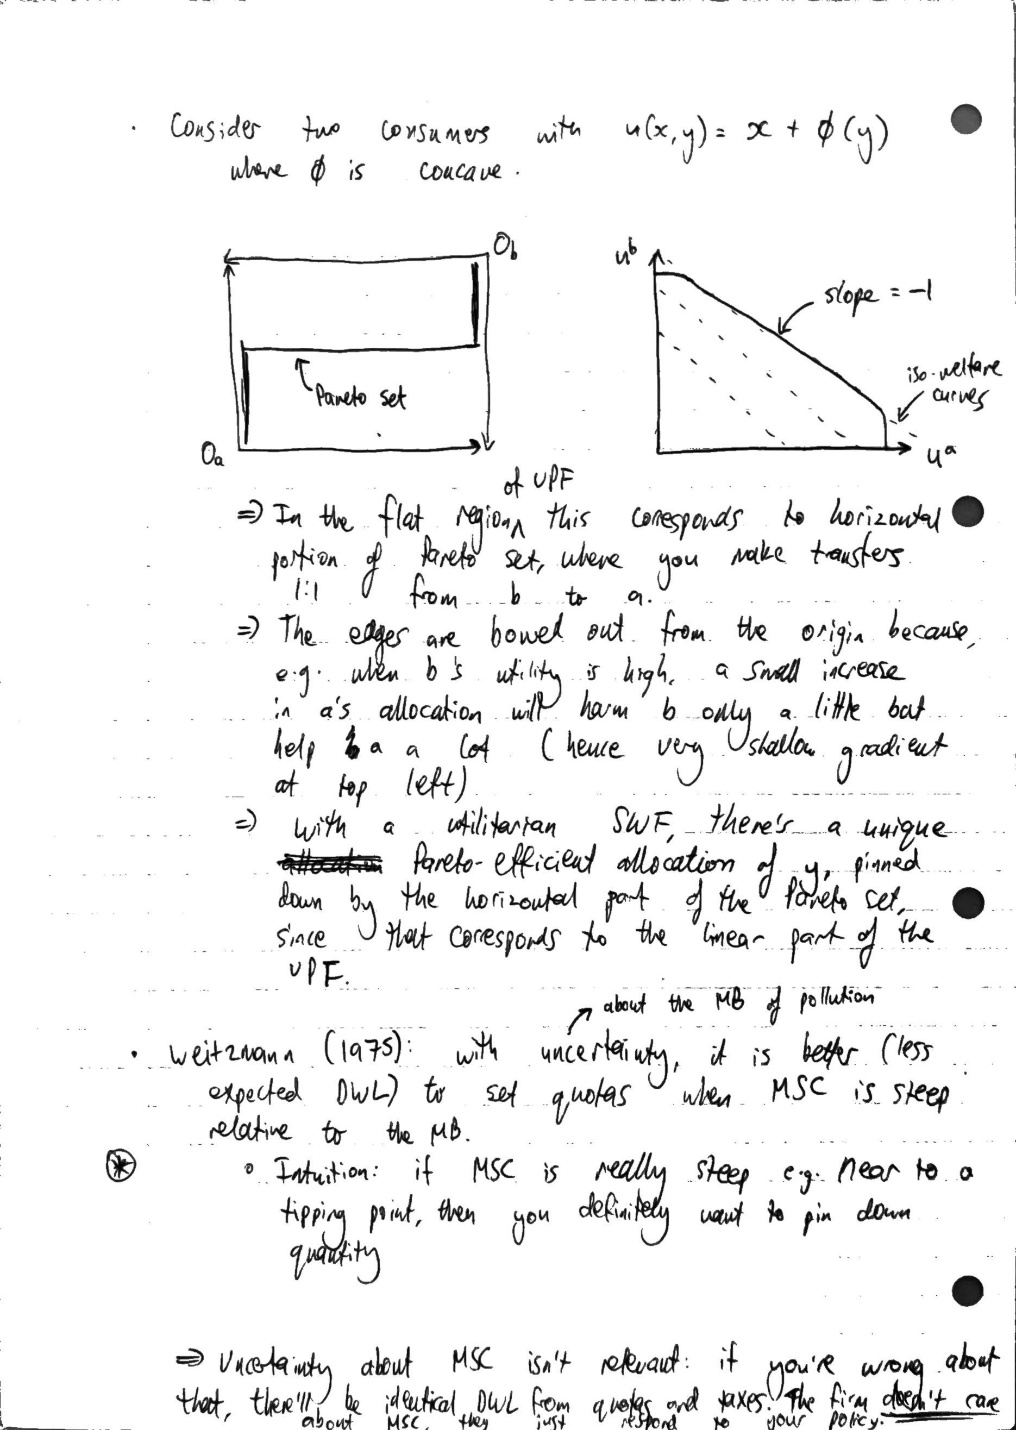 · Consider two consumers with u(x,y) = x + φ(y)
where φ is concave.
O_b
u^b
slope = -1
iso-welfare
curves
Pareto set
O_a
u^a
of UPF
⇒ In the flat region ^ this corresponds to horizontal
portion of Pareto set, where you make transfers
1:1 from b to a.
⇒ The edges are bowed out from the origin because,
e.g. when b's utility is high, a small increase
in a's allocation will harm b only a little but
help a a lot (hence very shallow gradient
at top left)
⇒ with a utilitarian SWF, there's a unique
Pareto-efficient allocation of y, pinned
down by the horizontal part of the Pareto set,
since that corresponds to the linear part of the
UPF.
↗ about the MB of pollution
· Weitzmann (1975): with uncertainty, it is better (less
expected DWL) to set quotas when MSC is steep
relative to the MB.
⊛ ∘ Intuition: if MSC is really steep e.g. near to a
tipping point, then you definitely want to pin down
quantity
⇒ Uncertainty about MSC isn't relevant: if you're wrong about
that, there'll be identical DWL from quotas and taxes. The firm doesn't care
about MSC, they just respond to your policy.